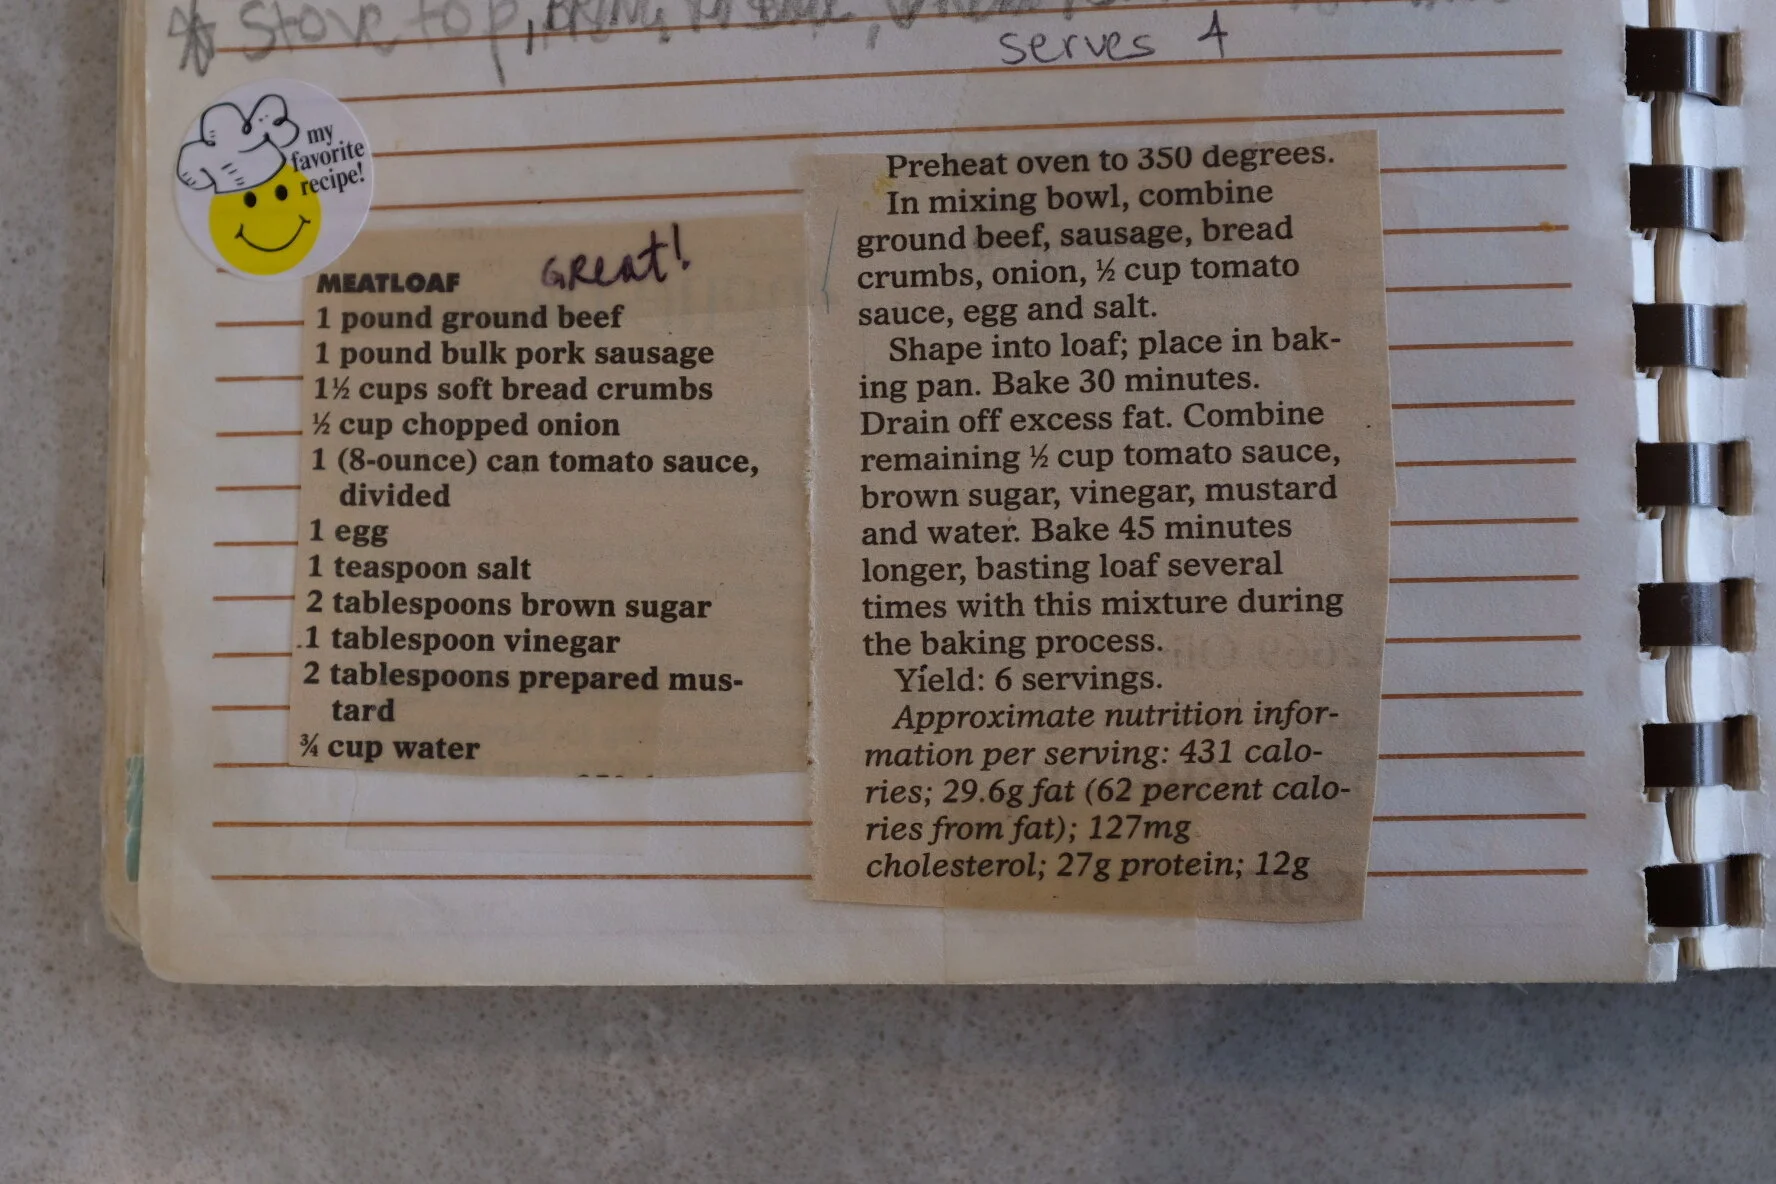 * Stove top,
serves 4
my
favorite
recipe!
MEATLOAF GReat!
1 pound ground beef
1 pound bulk pork sausage
1½ cups soft bread crumbs
½ cup chopped onion
1 (8-ounce) can tomato sauce,
divided
1 egg
1 teaspoon salt
2 tablespoons brown sugar
1 tablespoon vinegar
2 tablespoons prepared mus-
tard
¾ cup water
Preheat oven to 350 degrees.
In mixing bowl, combine
ground beef, sausage, bread
crumbs, onion, ½ cup tomato
sauce, egg and salt.
Shape into loaf; place in bak-
ing pan. Bake 30 minutes.
Drain off excess fat. Combine
remaining ½ cup tomato sauce,
brown sugar, vinegar, mustard
and water. Bake 45 minutes
longer, basting loaf several
times with this mixture during
the baking process.
Yield: 6 servings.
Approximate nutrition infor-
mation per serving: 431 calo-
ries; 29.6g fat (62 percent calo-
ries from fat); 127mg
cholesterol; 27g protein; 12g